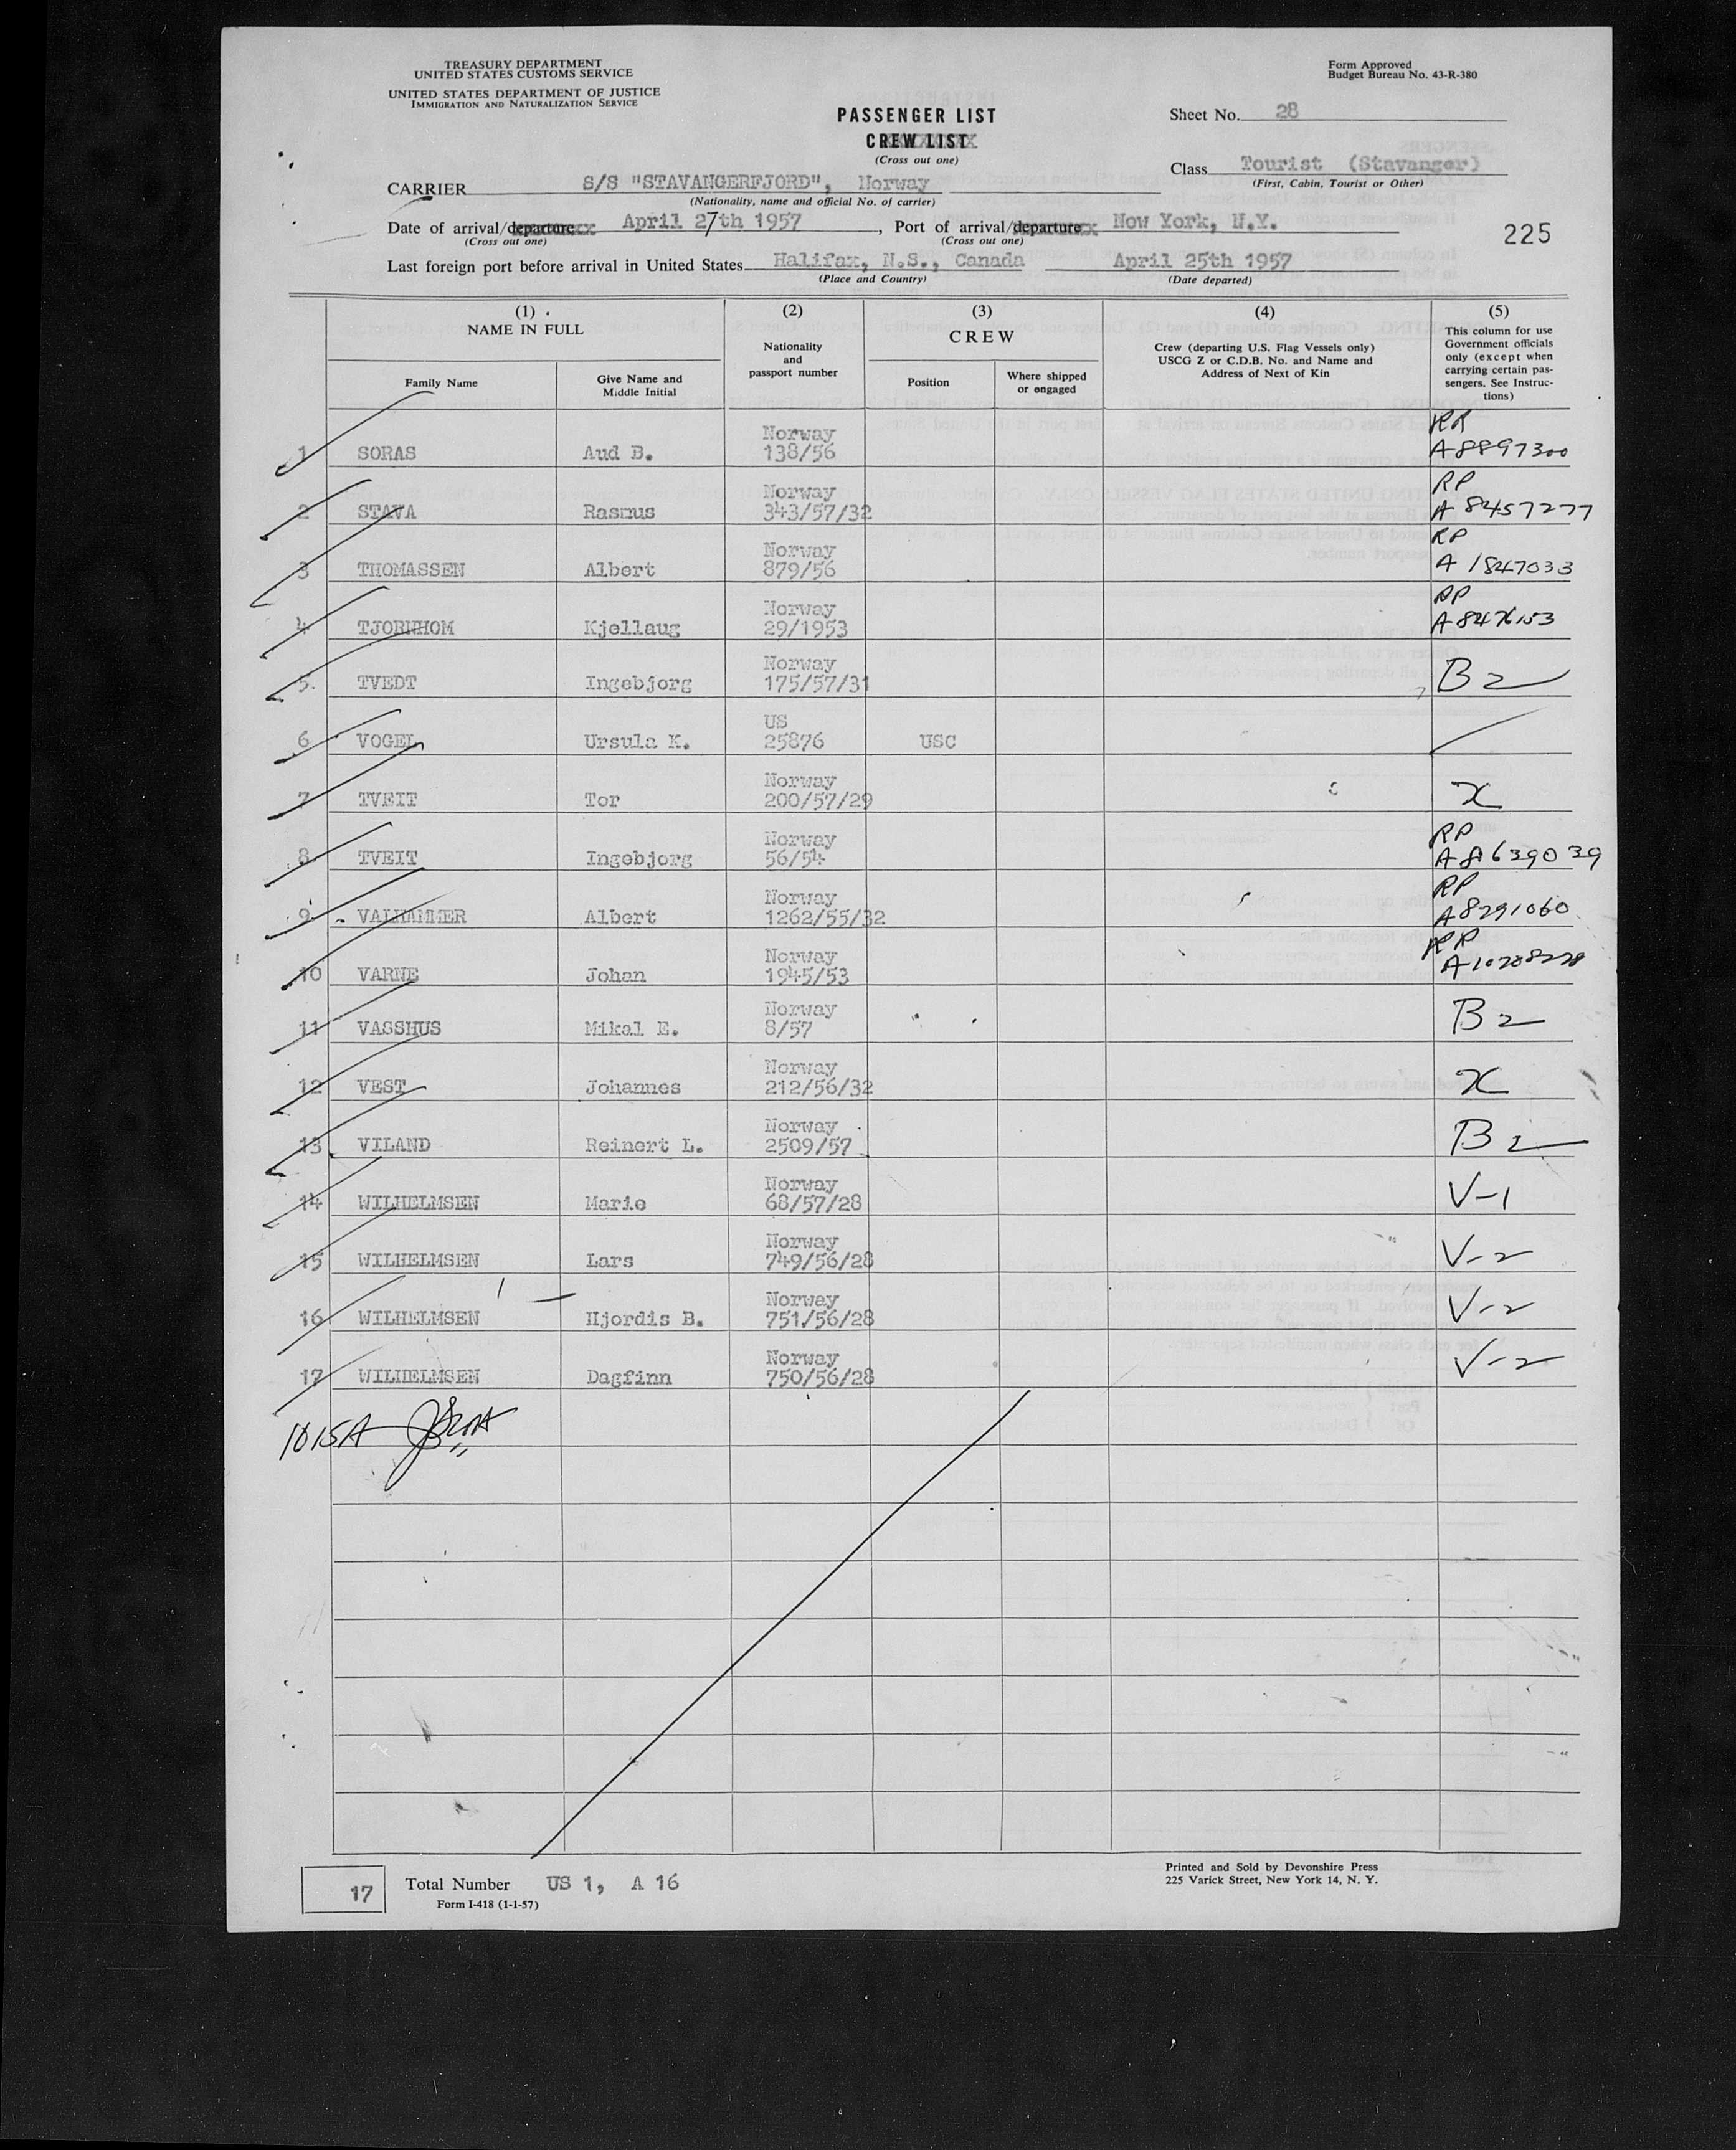 TREASURY DEPARTMENT
UNITED STATES CUSTOMS SERVICE
UNITED STATES DEPARTMENT OF JUSTICE
IMMIGRATION AND NATURALIZATION SERVICE
Form Approved
Budget Bureau No. 43-R-380
PASSENGER LIST
CREW LIST
(Cross out one)
Sheet No. 28
Class Tourist (Stavanger)
(First, Cabin, Tourist or Other)
CARRIER S/S "STAVANGERFJORD", Norway
(Nationality, name and official No. of carrier)
Date of arrival/departure April 27th 1957, Port of arrival/departure New York, N.Y.
(Cross out one) (Cross out one)
225
Last foreign port before arrival in United States Halifax, N.S., Canada April 25th 1957
(Place and Country) (Date departed)
(1) (2) (3) (4) (5)
NAME IN FULL
Family Name
Give Name and Middle Initial
Nationality and passport number
CREW
Position
Where shipped or engaged
Crew (departing U.S. Flag Vessels only)
USCG Z or C.D.B. No. and Name and
Address of Next of Kin
This column for use
Government officials
only (except when
carrying certain pas-
sengers. See Instruc-
tions)
1 SORAS Aud B. Norway 138/56 A8897300
2 STAVA Rasmus Norway 343/57/32 RP A 8457277
3 THOMASSEN Albert Norway 879/56 RP A 1847033
4 TJORNHOM Kjellaug Norway 29/1953 RP
5. TVEDT Ingebjorg Norway 175/57/31 B2
6 VOGEL Ursula K. US 25876 USC
7 TVEIT Tor Norway 200/57/29 X
8 TVEIT Ingebjorg Norway 56/54 RP A8639039
9 VALHAMMER Albert Norway 1262/55/32 RP A8291060
10 VARNE Johan Norway 1945/53 RP
11 VASSHUS Mikal E. Norway 8/57 B2
12 VEST Johannes Norway 212/56/32 X
13 VILAND Reinert L. Norway 2509/57 B2
14 WILHELMSEN Marie Norway 68/57/28 V-1
15 WILHELMSEN Lars Norway 749/56/28 V-2
16 WILHELMSEN Hjordis B. Norway 751/56/28 V-2
17 WILHELMSEN Dagfinn Norway 750/56/28 V-2
1015A
17 Total Number US 1, A 16
Form I-418 (1-1-57)
Printed and Sold by Devonshire Press
225 Varick Street, New York 14, N. Y.